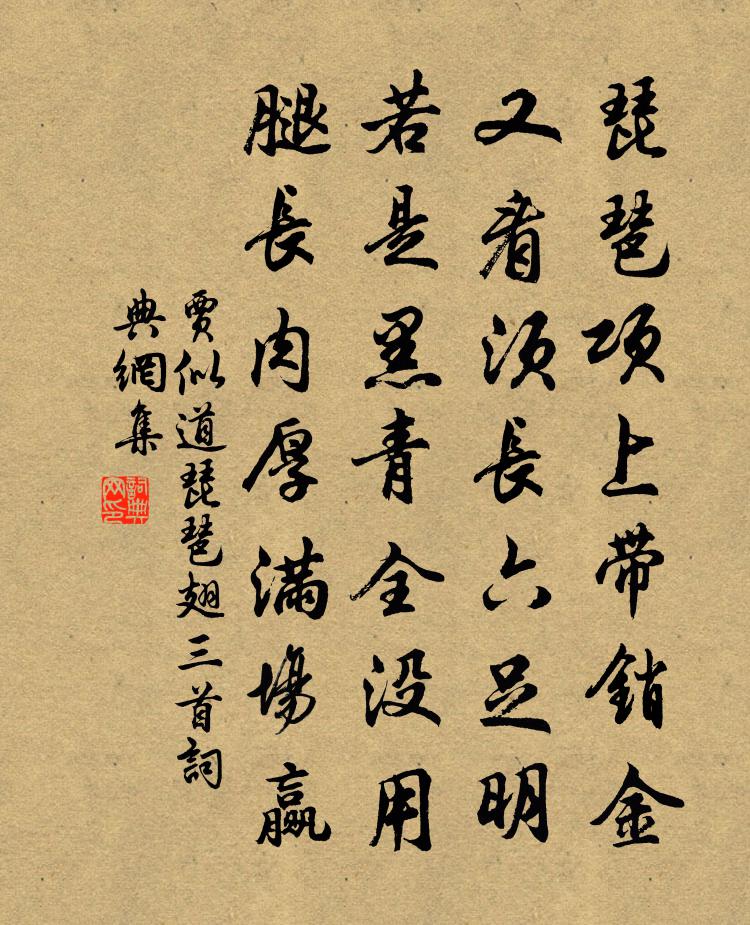 琵琶項上帶銷金
又看須長六足明
若是黑青全没用
腿長肉厚滿場贏
賈似道琵琶翅三首詞
典網集
詞典網印